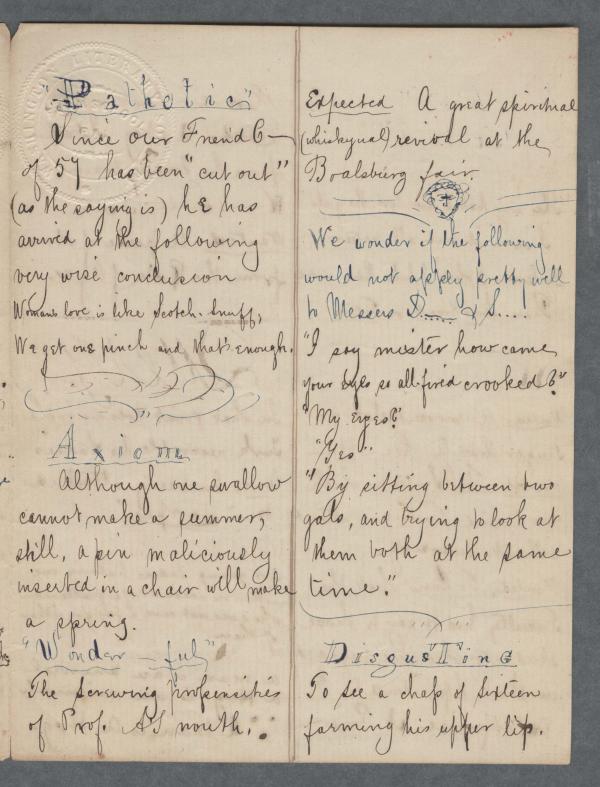 "Pathetic"
Since our Friend C—
of 57 has been "cut out"
(as the saying is) he has
arrived at the following
very wise conclusion
Womans love is like Scotch-snuff,
We get one pinch and that's enough.
Axiom
Although one swallow
cannot make a summer,
still, a pin maliciously
inserted in a chair will make
a spring.
"Wonder-ful"
The Screwing propensities
of Prof. mouth.
Expected A great spiritual
(whiskyual) revival at the
Boalsburg fair.
We wonder if the following
would not apply pretty well
to Messers D..... & S....
"I say mister how came
your Eyes so all-fired crooked?"
"My eyes?"
"Yes"
"By sitting between two
gals, and trying to look at
them both at the same
time."
DisgusTing
To see a chap of Sixteen
farming his upper lip.